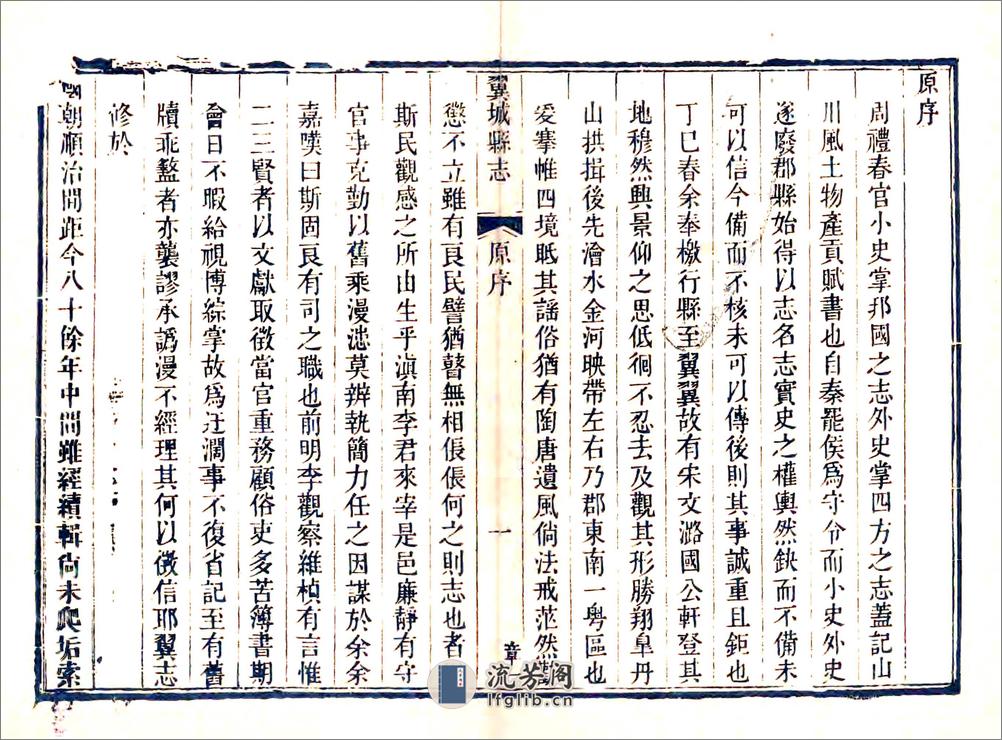 原序
周禮春官小史掌邦國之志外史掌四方之志蓋記山
川風土物產貢賦書也自秦罷侯爲守令而小史外史
遂廢郡縣始得以志名志實史之權輿然缺而不備未
可以信今備而不核未可以傳後則其事誠重且鉅也
丁巳春余奉檄行縣至翼翼故有宋文潞國公軒登其
地穆然興景仰之思低徊不忍去及觀其形勝翔臯丹
山拱揖後先澮水金河映帶左右乃郡東南一粤區也
爰搴帷四境眂其謡俗猶有陶唐遺風倘法戒茫然
翼城縣志
原序
一
章
懲不立雖有良民譬猶瞽無相倀倀何之則志也者
斯民觀感之所由生乎滇南李君來宰是邑廉靜有守
官事克勤以舊乘漫漶莫辨執簡力任之因謀於余余
嘉嘆曰斯固良有司之職也前明李觀察維楨有言惟
二三賢者以文獻取徵當官重務顧俗吏多苦簿書期
會日不暇給視博綜掌故爲迂濶事不復省記至有舊
牘乖盭者亦襲謬承譌漫不經理其何以徵信耶翼志
修於
國朝順治間距今八十餘年中間雖經續輯尚未爬垢索
流芳阁
lfglib.cn